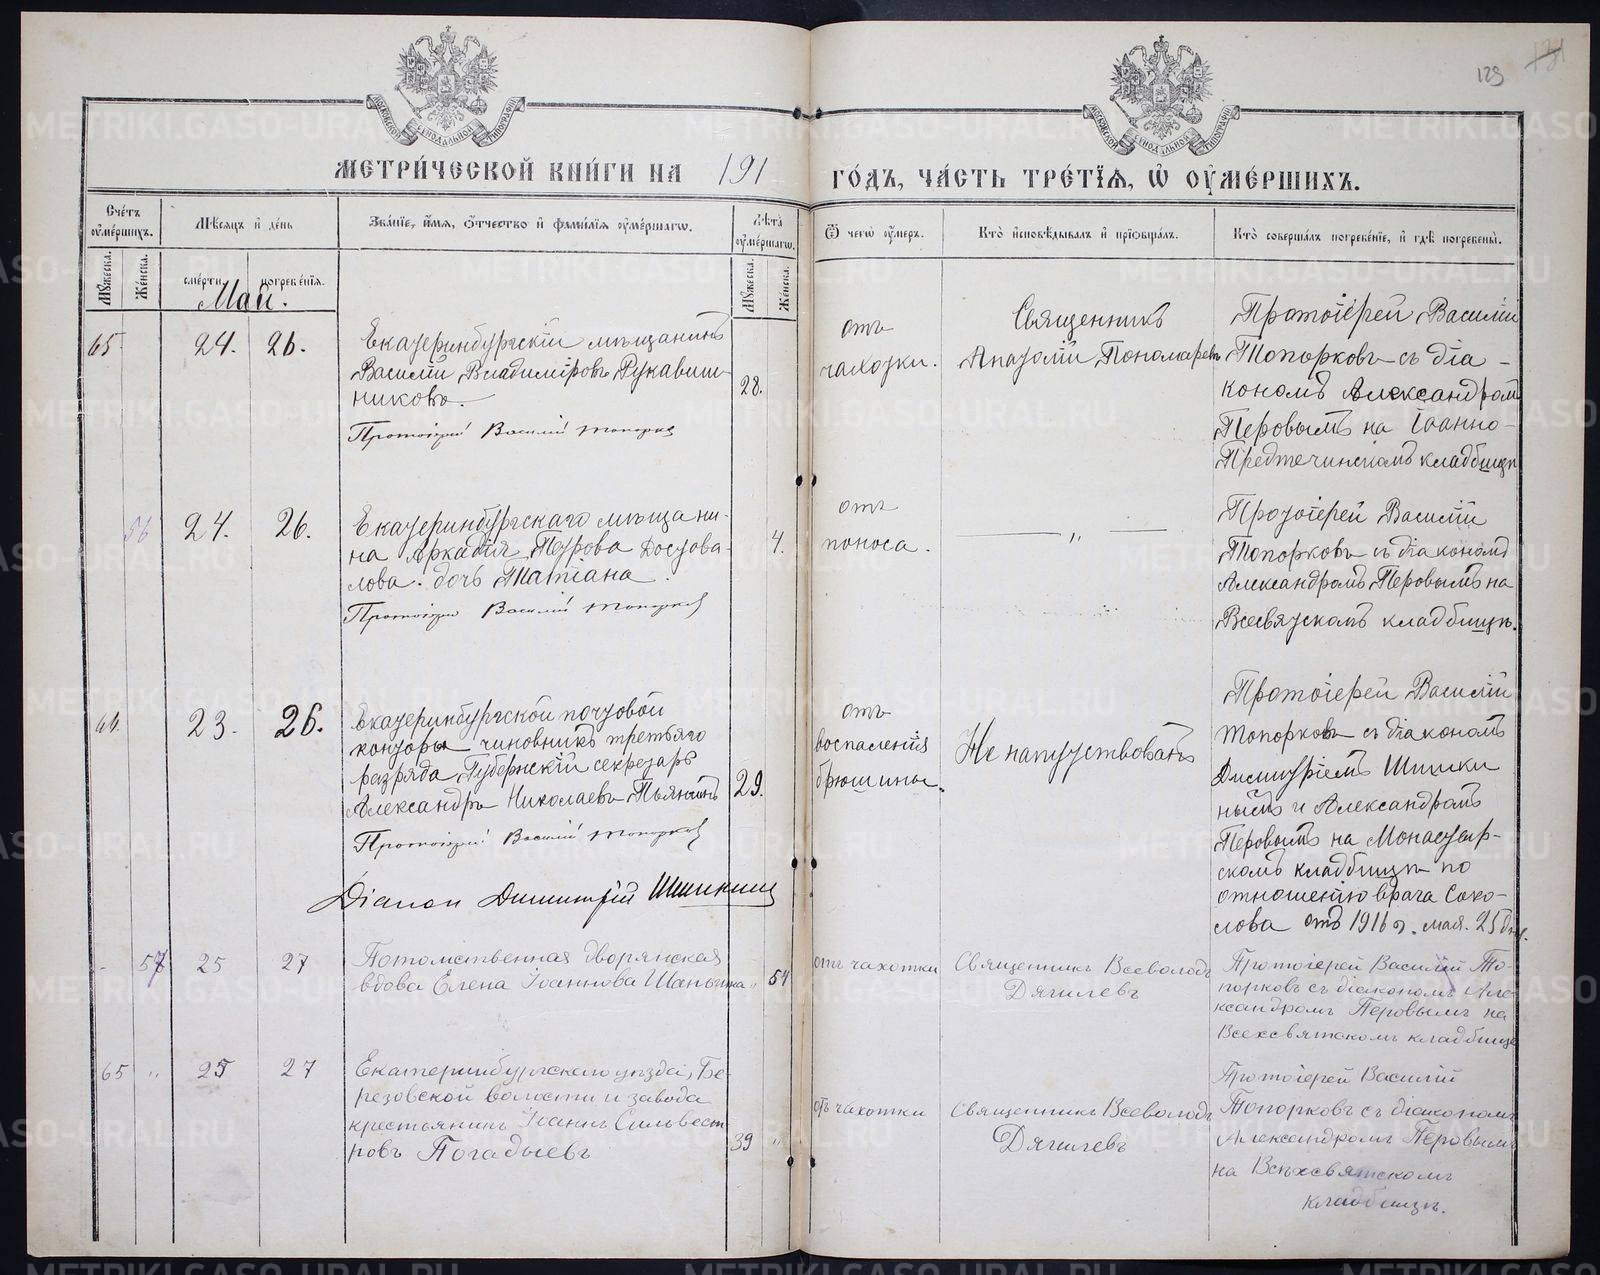 129
МЕТРИ́ЧЕСКОЙ КНИ́ГИ НА 191 ГО́ДЪ, ЧА́СТЬ ТРЕ́ТЇѦ, Ѡ ОУМЕ́РШИХЪ.
Сче́тъ оуме́ршихъ.
Мѣсяцъ и де́нь
Зва́нїе, и́мя, о́тчество и фами́лїя оуме́ршагѡ.
Лѣта̀ оуме́ршагѡ.
Ѿ чегѡ̀ оу́меръ.
Кто̀ исповѣ́дывалъ и прїѡбща́лъ.
Кто̀ соверша́лъ погребе́нїе, и гдѣ̀ погребены̀.
Мꙋжеска.
Же́нска.
сме́рти.
погребе́нїя.
Мꙋжеска.
Же́нска.
Май.
65. 24. 26.
Екатеринбургскій мѣщанинъ
Василій Владиміровъ Рукавиш-
никовъ.
Протоіерей Василій Топорков
28.
отъ
чахотки.
Священникъ
Анатолій Пономаревъ
Протоіерей Василій
Топорковъ съ діа-
кономъ Александромъ
Перовымъ на Іоанно-
Предтечинскомъ кладбищѣ
56 24. 26.
Екатеринбургскаго мѣщани-
на Аркадія Петрова Достова-
лова. дочь Татіана.
Протоіерей Василій Топорков
4.
отъ
поноса.
— „ —
Протоіерей Василій
Топорковъ съ діакономъ
Александромъ Перовымъ на
Всесвятскомъ кладбищѣ.
23. 26.
Екатеринбургской почтовой
конторы чиновникъ третьяго
разряда, Губернскій секретарь
Александръ Николаевъ Пьянинъ
Протоіерей Василій Топорков
Діакон Димитрій Шишкин
29.
отъ
воспаленія
брюшины.
Не напутствованъ
Протоіерей Василій
Топорковъ съ діакономъ
Димитріемъ Шишки
нымъ и Александромъ
Перовымъ на Монастыр-
скомъ кладбищѣ по
отношенію врача Соко-
лова отъ 1916 г. мая. 25 дня.
- 57 25 27
Потомственная дворянская
вдова Елена Іоаннова Шаньгина
„ 54
отъ чахотки
Священникъ Всеволодъ
Дягилевъ
Протоіерей Василій То-
порковъ съ діакономъ Але-
ксандромъ Перовымъ на
Всехсвятскомъ кладбище
65 „ 25 27
Екатеринбургскаго уѣзда, Бе-
резовской волости и завода
крестьянинъ Іоаннъ Сильвест
ровъ Погадыевъ
39 „
отъ чахотки
Священникъ Всеволодъ
Дягилевъ
Протоіерей Василій
Топорковъ съ діакономъ
Александромъ Перовымъ
на Всѣхсвятскомъ
кладбищѣ.
METRIKI.GASO-URAL.RU